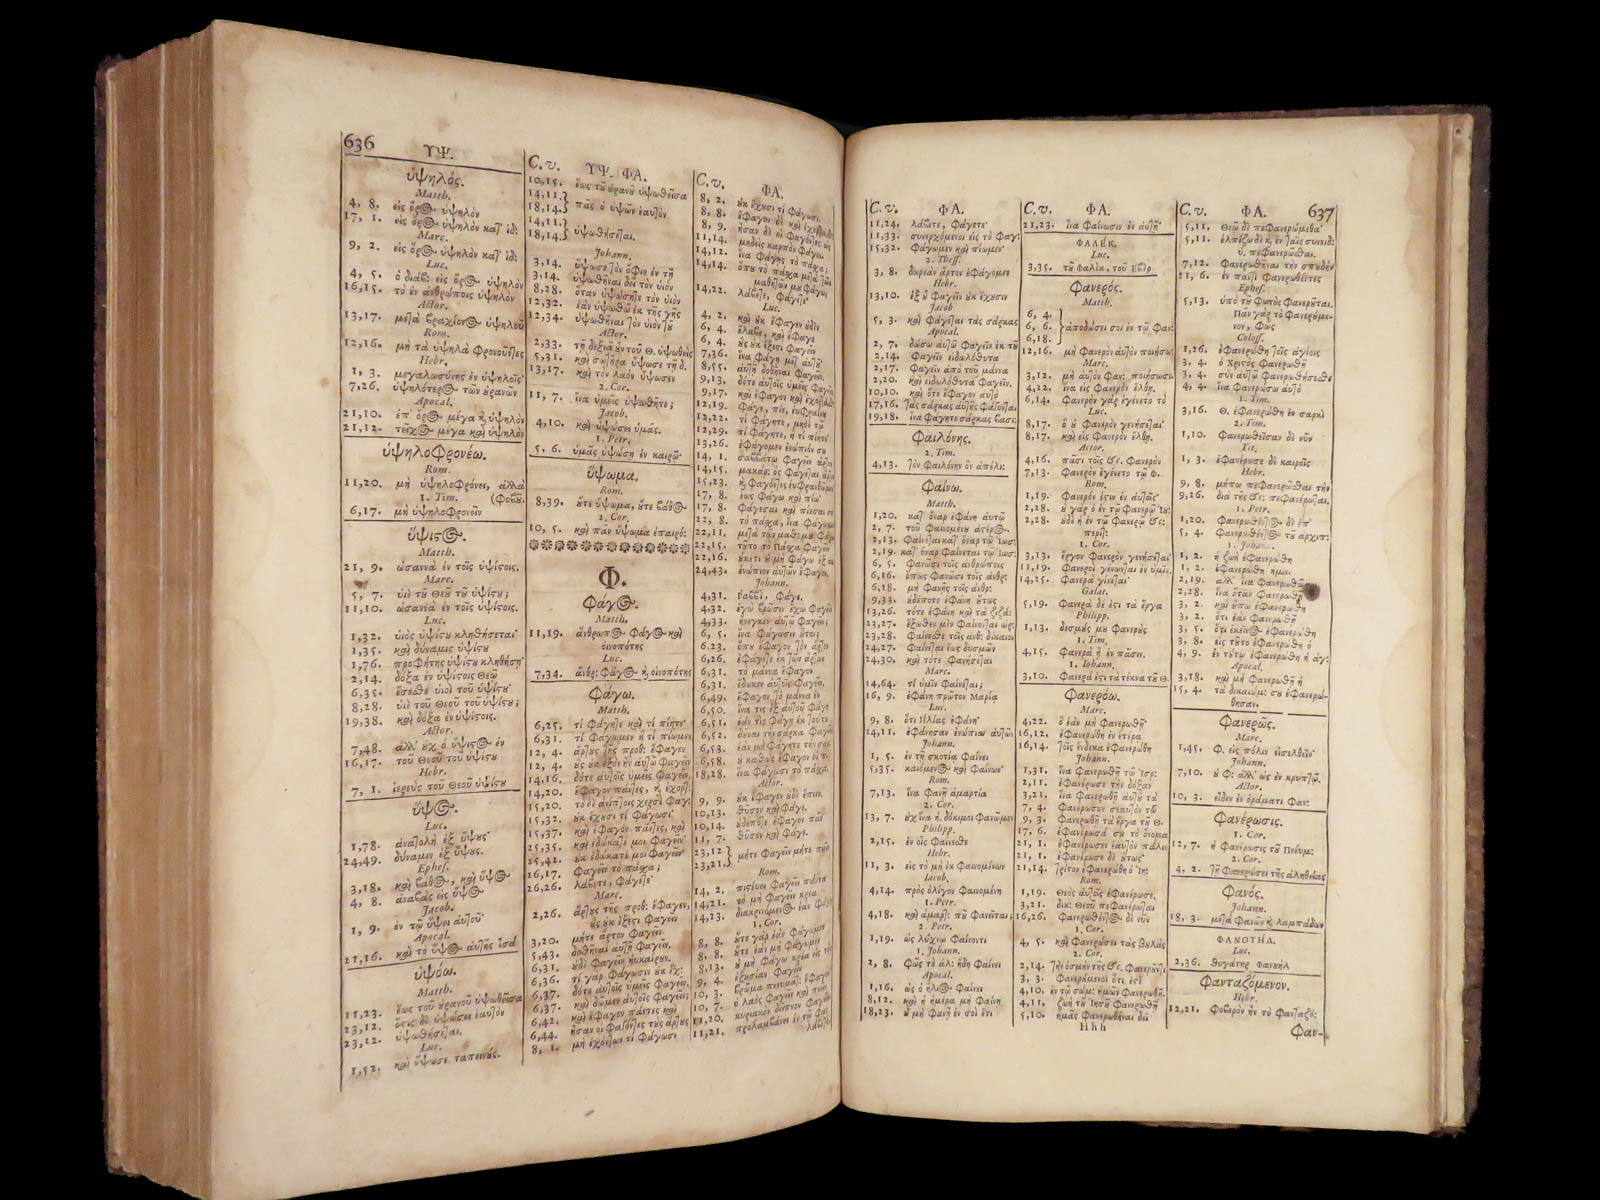 636
ΥΨ.
ὑψηλός.
Matth.
4, 8. εἰς ὄρος ὑψηλὸν
17, 1. εἰς ὄρος ὑψηλὸν κατ' ἰδ:
Marc.
9, 2. εἰς ὄρος ὑψηλὸν κατ' ἰδ:
Luc.
4, 5. ὁ διάβ: εἰς ὄρος ὑψηλὸν
16,15. τὸ ἐν ἀνθρώποις ὑψηλὸν
Actor.
13,17. μετὰ βραχίονος ὑψηλοῦ
Rom.
12,16. μὴ τὰ ὑψηλὰ φρονοῦντες
Hebr.
1, 3. μεγαλωσύνης ἐν ὑψηλοῖς·
7,26. ὑψηλότερος τῶν οὐρανῶν
Apocal.
21,10. ἐπ' ὄρος μέγα καὶ ὑψηλὸν
21,12. τεῖχος μέγα καὶ ὑψηλὸν
ὑψηλοφρονέω.
Rom.
11,20. μὴ ὑψηλοφρόνει, ἀλλὰ
(φοβοῦ.
1. Tim.
6,17. μὴ ὑψηλοφρονεῖν
ὕψιστος.
Matth.
21, 9. ὡσαννὰ ἐν τοῖς ὑψίστοις.
Marc.
5, 7. υἱὲ τοῦ Θεοῦ τοῦ ὑψίστου;
11,10. ὡσαννὰ ἐν τοῖς ὑψίστοις.
Luc.
1,32. υἱὸς ὑψίστου κληθήσεται·
1,35. καὶ δύναμις ὑψίστου
1,76. προφήτης ὑψίστου κληθήσῃ·
2,14. δόξα ἐν ὑψίστοις Θεῷ
6,35. ἔσεσθε υἱοὶ τοῦ ὑψίστου·
8,28. υἱὲ τοῦ Θεοῦ τοῦ ὑψίστου;
19,38. καὶ δόξα ἐν ὑψίστοις.
Actor.
7,48. ἀλλ' οὐχ ὁ ὕψιστος ἐν
16,17. τοῦ Θεοῦ τοῦ ὑψίστου
Hebr.
7, 1. ἱερεὺς τοῦ Θεοῦ ὑψίστου
ὕψος.
Luc.
1,78. ἀνατολὴ ἐξ ὕψους·
24,49. δύναμιν ἐξ ὕψους.
Ephes.
3,18. καὶ βάθος, καὶ ὕψος
4, 8. ἀναβὰς εἰς ὕψος
Jacob.
1, 9. ἐν τῷ ὕψει αὐτοῦ·
Apocal.
21,16. καὶ τὸ ὕψος αὐτῆς ἴσα
ὑψόω.
Matth.
11,23. ἕως τοῦ οὐρανοῦ ὑψωθεῖσα
23,12. ὅστις δὲ ὑψώσει ἑαυτὸν
23,12. ὑψωθήσεται.
Luc.
1,52. καὶ ὕψωσε ταπεινούς.
C. v. ΥΨ. ΦΑ.
10,15. ἕως τοῦ οὐρανοῦ ὑψωθεῖσα
14,11.}
18,14.} πᾶς ὁ ὑψῶν ἑαυτὸν
14,11.}
18,14.} ὑψωθήσεται.
Johann.
3,14. ὕψωσε τὸν ὄφιν ἐν τῇ
3,14. ὑψωθῆναι δεῖ τὸν υἱὸν
8,28. ὅταν ὑψώσητε τὸν υἱὸν
12,32. ἐὰν ὑψωθῶ ἐκ τῆς γῆς
12,34. ὑψωθῆναι τὸν υἱὸν τοῦ
Actor.
2,33. τῇ δεξιᾷ οὖν τοῦ Θ. ὑψωθεὶς
5,31. καὶ σωτῆρα ὕψωσε τῇ δ.
13,17. καὶ τὸν λαὸν ὕψωσεν
2. Cor.
11, 7. ἵνα ὑμεῖς ὑψωθῆτε;
Jacob.
4,10. καὶ ὑψώσει ὑμᾶς.
1. Petr.
5, 6. ὑμᾶς ὑψώσῃ ἐν καιρῷ·
ὕψωμα.
Rom.
8,39. οὔτε ὕψωμα, οὔτε βάθος
2. Cor.
10, 5. καὶ πᾶν ὕψωμα ἐπαιρό:
Φ.
Φάγος.
Matth.
11,19. ἄνθρωπος φάγος καὶ
οἰνοπότης
Luc.
7,34. ἄνθρ: φάγος καὶ οἰνοπότης
Φάγω.
Matth.
6,25. τί φάγητε καὶ τί πίητε·
6,31. τί φάγωμεν ἢ τί πίωμεν
12, 4. ἄρτους τῆς προθ: ἔφαγεν
12, 4. οὓς οὐκ ἐξὸν ἦν αὐτῷ φαγεῖν
14,16. δότε αὐτοῖς ὑμεῖς φαγεῖν.
14,20. ἔφαγον πάντες, καὶ ἐχορτ:
15,20. τὸ δὲ ἀνίπτοις χερσὶ φαγ:
15,32. οὐκ ἔχουσι τί φάγωσι·
15,37. καὶ ἔφαγον πάντες, καὶ
25,35. καὶ ἐδώκατέ μοι φαγεῖν·
25,42. οὐκ ἐδώκατέ μοι φαγεῖν·
26,17. φαγεῖν τὸ πάσχα;
26,26. λάβετε, φάγετε·
Marc.
2,26. ἄρτους τῆς προθ: ἔφαγεν,
οὓς οὐκ ἔξεστι φαγεῖν
3,20. μήτε ἄρτον φαγεῖν.
5,43. δοθῆναι αὐτῇ φαγεῖν.
6,31. οὐδὲ φαγεῖν ηὐκαίρουν.
6,36. τί γὰρ φάγωσιν οὐκ ἔχ:
6,37. δότε αὐτοῖς ὑμεῖς φαγεῖν.
6,37. καὶ δῶμεν αὐτοῖς φαγεῖν;
6,42. καὶ ἔφαγον πάντες καὶ
6,44. ἦσαν οἱ φαγόντες τοὺς ἄρτους
8, 1. μὴ ἐχόντων τί φάγωσι
C. v. ΦΑ.
8, 2. οὐκ ἔχουσι τί φάγωσι.
8, 8. ἔφαγον δὲ καὶ
8, 9. ἦσαν δὲ οἱ φαγόντες ὡς
11,14. μηδεὶς καρπὸν φάγοι.
14,12. ἵνα φάγῃς τὸ πάσχα;
14,14. ὅπου τὸ πάσχα μετὰ τῶν
μαθητῶν μου φάγω;
14,22. λάβετε, φάγετε·
Luc.
4, 2. καὶ οὐκ ἔφαγεν οὐδὲν
6, 4. ἔλαβε, καὶ ἔφαγε
6, 4. οὓς οὐκ ἔξεστι φαγεῖν
7,36. ἵνα φάγῃ μετ' αὐτοῦ·
8,55. αὐτῇ δοθῆναι φαγεῖν.
9,13. δότε αὐτοῖς ὑμεῖς φαγεῖν.
9,17. καὶ ἔφαγον καὶ
12,19. φάγε, πίε, εὐφραίνου
12,22. τί φάγητε, μηδὲ τῷ
12,29. τί φάγητε, ἢ τί πίητε·
13,26. ἐφάγομεν ἐνώπιόν σου
14, 1. σαββάτῳ φαγεῖν ἄρτον
14,15. μακάρ: ὃς φάγεται ἄρτον
15,23. καὶ φαγόντες εὐφρανθῶμεν
17, 8. ἕως φάγω καὶ πίω·
17, 8. φάγεσαι καὶ πίεσαι σύ
22, 8. τὸ πάσχα, ἵνα φάγωμεν
22,11. μετὰ τῶν μαθ: μου φάγω
22,15. τοῦτο τὸ πάσχα φαγεῖν
22,16. οὐκέτι οὐ μὴ φάγω ἐξ αὐ
24,43. ἐνώπιον αὐτῶν ἔφαγεν.
Johann.
4,31. ῥαββὶ, φάγε.
4,32. ἐγὼ βρῶσιν ἔχω φαγεῖν
4,33. ἤνεγκεν αὐτῷ φαγεῖν;
6, 5. ἵνα φάγωσιν οὗτοι;
6,23. ὅπου ἔφαγον τὸν ἄρτον
6,26. ἐφάγετε ἐκ τῶν ἄρτων
6,31. τὸ μάννα ἔφαγον
6,31. ἔδωκεν αὐτοῖς φαγεῖν.
6,49. ἔφαγον τὸ μάννα ἐν
6,50. ἵνα τις ἐξ αὐτοῦ φάγῃ
6,51. ἐάν τις φάγῃ ἐκ τούτου
6,52. δοῦναι τὴν σάρκα φαγεῖν
6,53. ἐὰν μὴ φάγητε τὴν σάρ.
6,58. οὐ καθὼς ἔφαγον οἱ π.
18,28. ἵνα φάγωσι τὸ πάσχα.
Actor.
9, 9. οὐκ ἔφαγεν οὐδὲ ἔπιεν.
10,13. θῦσον καὶ φάγε.
10,14. οὐδέποτε ἔφαγον πᾶν
11, 7. θῦσον καὶ φάγε.
23,12.}
23,21.} μήτε φαγεῖν μήτε πιεῖν
Rom.
14, 2. πιστεύει φαγεῖν πάντα
14,21. τὸ μὴ φαγεῖν κρέα
14,23. διακρινόμενος ἐὰν φάγῃ
1. Cor.
8, 8. οὔτε γὰρ ἐὰν φάγωμεν
8, 8. οὔτε ἐὰν μὴ φάγωμεν
8,13. οὐ μὴ φάγω κρέα εἰς τὸν
9, 4. ἐξουσίαν φαγεῖν
10, 3. βρῶμα πνευματ: ἔφαγον
10, 7. ὁ λαὸς φαγεῖν καὶ πιεῖν
11,20. κυριακὸν δεῖπνον φαγεῖν
11,21. προλαμβάνει ἐν τῷ φαγ
λάβετε,
C. v. ΦΑ.
11,24. λάβετε, φάγετε·
11,33. συνερχόμενοι εἰς τὸ φαγ:
15,32. φάγωμεν καὶ πίωμεν·
2. Thess.
3, 8. δωρεὰν ἄρτον ἐφάγομεν
Hebr.
13,10. ἐξ οὗ φαγεῖν οὐκ ἔχουσιν
Jacob
5, 3. καὶ φάγεται τὰς σάρκας
Apocal.
2, 7. δώσω αὐτῷ φαγεῖν ἐκ τοῦ
2,14. φαγεῖν εἰδωλόθυτα
2,17. φαγεῖν ἀπὸ τοῦ μάννα
2,20. καὶ εἰδωλόθυτα φαγεῖν.
10,10. καὶ ὅτε ἔφαγον αὐτὸ
17,16. τὰς σάρκας αὐτῆς φάγονται
19,18. ἵνα φάγητε σάρκας βασι:
Φαιλόνης.
2. Tim.
4,13. τὸν φαιλόνην ὃν ἀπέλι:
Φαίνω.
Matth.
1,20. κατ' ὄναρ ἐφάνη αὐτῷ
2, 7. τοῦ φαινομένου ἀστέρος.
2,13. φαίνεται κατ' ὄναρ τῷ Ἰωσ:
2,19. κατ' ὄναρ φαίνεται τῷ Ἰωσ:
6, 5. φανῶσι τοῖς ἀνθρώποις
6,16. ὅπως φανῶσι τοῖς ἀνθρ:
6,18. μὴ φανῇς τοῖς ἀνθρ:
9,33. οὐδέποτε ἐφάνη οὕτως
13,26. τότε ἐφάνη καὶ τὰ ζιζά:
23,27. ἔξωθεν μὲν φαίνονται ὡρ:
23,28. φαίνεσθε τοῖς ἀνθ: δίκαιοι
24,27. φαίνεται ἕως δυσμῶν
24,30. καὶ τότε φανήσεται
Marc.
14,64. τί ὑμῖν φαίνεται;
16, 9. ἐφάνη πρῶτον Μαρίᾳ
Luc.
9, 8. ὅτι Ηλίας ἐφάνη·
24,11. ἐφάνησαν ἐνώπιον αὐτῶν
Johann.
1, 5. ἐν τῇ σκοτίᾳ φαίνει
5,35. καιόμενος καὶ φαίνων·
Rom.
7,13. ἵνα φανῇ ἁμαρτία
2. Cor.
13, 7. οὐχ ἵνα ἡ. δόκιμοι φανῶμεν
Philipp.
2,15. ἐν οἷς φαίνεσθε
Hebr.
11, 3. εἰς τὸ μὴ ἐκ φαινομένων
Iacob.
4,14. πρὸς ὀλίγον φαινομένη
1. Petr.
4,18. καὶ ἁμαρτ: ποῦ φανεῖται;
2. Petr.
1,19. ὡς λύχνῳ φαίνοντι
1. Johann.
2, 8. φῶς τὸ ἀλ: ἤδη φαίνει
Apocal.
1,16. ὡς ὁ ἥλιος φαίνει
8,12. καὶ ἡ ἡμέρα μὴ φαίνῃ
18,23. οὐ μὴ φανῇ ἐν σοὶ ἔτι
C. v. ΦΑ.
21,23. ἵνα φαίνωσιν ἐν αὐτῇ·
ΦΑΛΕΚ.
Luc.
3,35. τοῦ Φαλὲκ, τοῦ Εβὲρ
Φανερός.
Matth.
6, 4.}
6, 6.} ἀποδώσει σοι ἐν τῷ φαν:
6,18.}
12,16. μὴ φανερὸν αὐτὸν ποιήσωσι
Marc.
3,12. μὴ αὐτὸν φαν: ποιήσωσι
4,22. ἵνα εἰς φανερὸν ἔλθῃ.
6,14. φανερὸν γὰρ ἐγένετο τὸ
Luc.
8,17. ὃ οὐ φανερὸν γενήσεται·
8,17. καὶ εἰς φανερὸν ἔλθῃ.
Actor.
4,16. πᾶσι τοῖς &c. φανερὸν
7,13. φανερὸν ἐγένετο τῷ Φ.
Rom.
1,19. φανερόν ἐστιν ἐν αὐτοῖς·
2,28. οὐ γὰρ ὁ ἐν τῷ φανερῷ Ἰου:
2,28. οὐδὲ ἡ ἐν τῷ φανερῷ &c:
περιτ:
1. Cor.
3,13. ἔργον φανερὸν γενήσεται·
11,19. φανεροὶ γένωνται ἐν ὑμῖν.
14,25. φανερὰ γίνεται·
Galat.
5,19. φανερὰ δέ ἐστι τὰ ἔργα
Philipp.
1,13. δεσμούς μου φανεροὺς
1. Tim.
4,15. φανερὰ ᾖ ἐν πᾶσιν.
1. Iohann.
3,10. φανερά ἐστι τὰ τέκνα τοῦ Θ.
Φανερόω.
Marc.
4,22. ὃ ἐὰν μὴ φανερωθῇ·
16,12. ἐφανερώθη ἐν ἑτέρᾳ
16,14. τοῖς ἕνδεκα ἐφανερώθη
Johann.
1,31. ἵνα φανερωθῇ τῷ Ἰσρ:
2,11. ἐφανέρωσε τὴν δόξαν
3,21. ἵνα φανερωθῇ αὐτοῦ τὰ
7, 4. φανέρωσον σεαυτὸν τῷ
9, 3. φανερωθῇ τὰ ἔργα τοῦ Θ.
17, 6. ἐφανέρωσά σου τὸ ὄνομα
21, 1. ἐφανέρωσεν ἑαυτὸν πάλιν
21, 1. ἐφανέρωσε δὲ οὕτως·
21,14. τρίτον ἐφανερώθη ὁ Ἰη:
Rom.
1,19. Θεὸς αὐτοῖς ἐφανέρωσε.
3,21. δικ: Θεοῦ πεφανέρωται
16,26. φανερωθέντος δὲ νῦν
1. Cor.
4, 5. καὶ φανερώσει τὰς βουλὰς
2. Cor.
2,14. τὴν ὀσμὴν τῆς &c. φανεροῦντι
3, 3. φανερούμενοι ὅτι ἐστὲ
4,10. ἐν τῷ σώμ: ἡμῶν φανερωθῇ.
4,11. ζωὴ τοῦ Ἰησοῦ φανερωθῇ
5,10. ἡμᾶς φανερωθῆναι δεῖ
Hhh
C. v. ΦΑ. 637
5,11. Θεῷ δὲ πεφανερώμεθα·
5,11. ἐλπίζω δὲ κ. ἐν ταῖς συνειδ:
ὑ. πεφανερῶσθαι.
7,12. φανερωθῆναι τὴν σπουδὴν
21, 6. ἐν παντὶ φανερωθέντες
Ephes.
5,13. ὑπὸ τοῦ φωτὸς φανεροῦται.
πᾶν γὰρ τὸ φανερούμε-
νον, φῶς
Coloss.
1,26. ἐφανερώθη τοῖς ἁγίοις
3, 4. ὁ Χριστὸς φανερωθῇ
3, 4. σὺν αὐτῷ φανερωθήσεσθε
4, 4. ἵνα φανερώσω αὐτὸ
1. Tim.
3,16. Θ. ἐφανερώθη ἐν σαρκὶ
2. Tim.
1,10. φανερωθεῖσαν δὲ νῦν
Tit.
1, 3. ἐφανέρωσε δὲ καιροῖς
Hebr.
9, 8. μήπω πεφανερῶσθαι τὴν
9,26. διὰ τῆς &c: πεφανέρωται.
1. Petr.
1,20. φανερωθέντος δὲ ἐπ'
5, 4. φανερωθέντος τοῦ ἀρχιπ:
1. Johann.
1, 2. ἡ ζωὴ ἐφανερώθη
1, 2. ἐφανερώθη ἡμῖν.
2,19. ἀλλ' ἵνα φανερωθῶ
2,28. ἵνα ὅταν φανερωθῇ
3, 2. καὶ οὔπω ἐφανερώθη
3, 2. ὅτι ἐὰν φανερωθῇ
3, 5. ὅτι ἐκεῖνος ἐφανερώθη
3, 8. εἰς τοῦτο ἐφανερώθη ὁ
4, 9. ἐν τούτῳ ἐφανερώθη ἡ ἀγ:
Apocal.
3,18. καὶ μὴ φανερωθῇ ἡ
15, 4. τὰ δικαιώμ: σου ἐφανερώ-
θησαν.
Φανερῶς.
Marc.
1,45. φ. εἰς πόλιν εἰσελθεῖν·
Johann.
7,10. οὐ φ: ἀλλ' ὡς ἐν κρυπτῷ.
Actor.
10, 3. εἶδεν ἐν ὁράματι φαν:
Φανέρωσις.
1. Cor.
12, 7. ἡ φανέρωσις τοῦ Πνεύμ:
2. Cor.
4, 2. τῇ φανερώσει τῆς ἀληθείας
Φανός.
Johann.
18, 3. μετὰ φανῶν καὶ λαμπάδων
ΦΑΝΟΥΗΛ.
Luc.
2,36. θυγάτηρ Φανουὴλ
Φανταζόμενον.
Hebr.
12,21. φοβερὸν ἦν τὸ φανταζό:
Φαν-